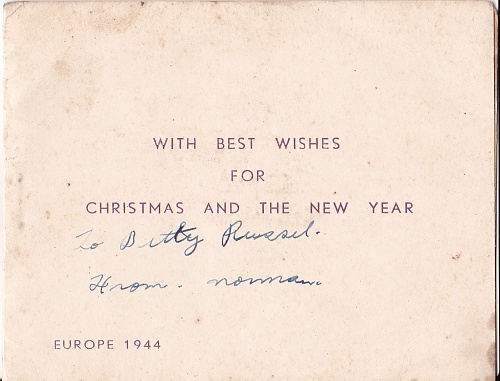 WITH BEST WISHES
FOR
CHRISTMAS AND THE NEW YEAR
To Betty Russel.
From. Norman.
EUROPE 1944